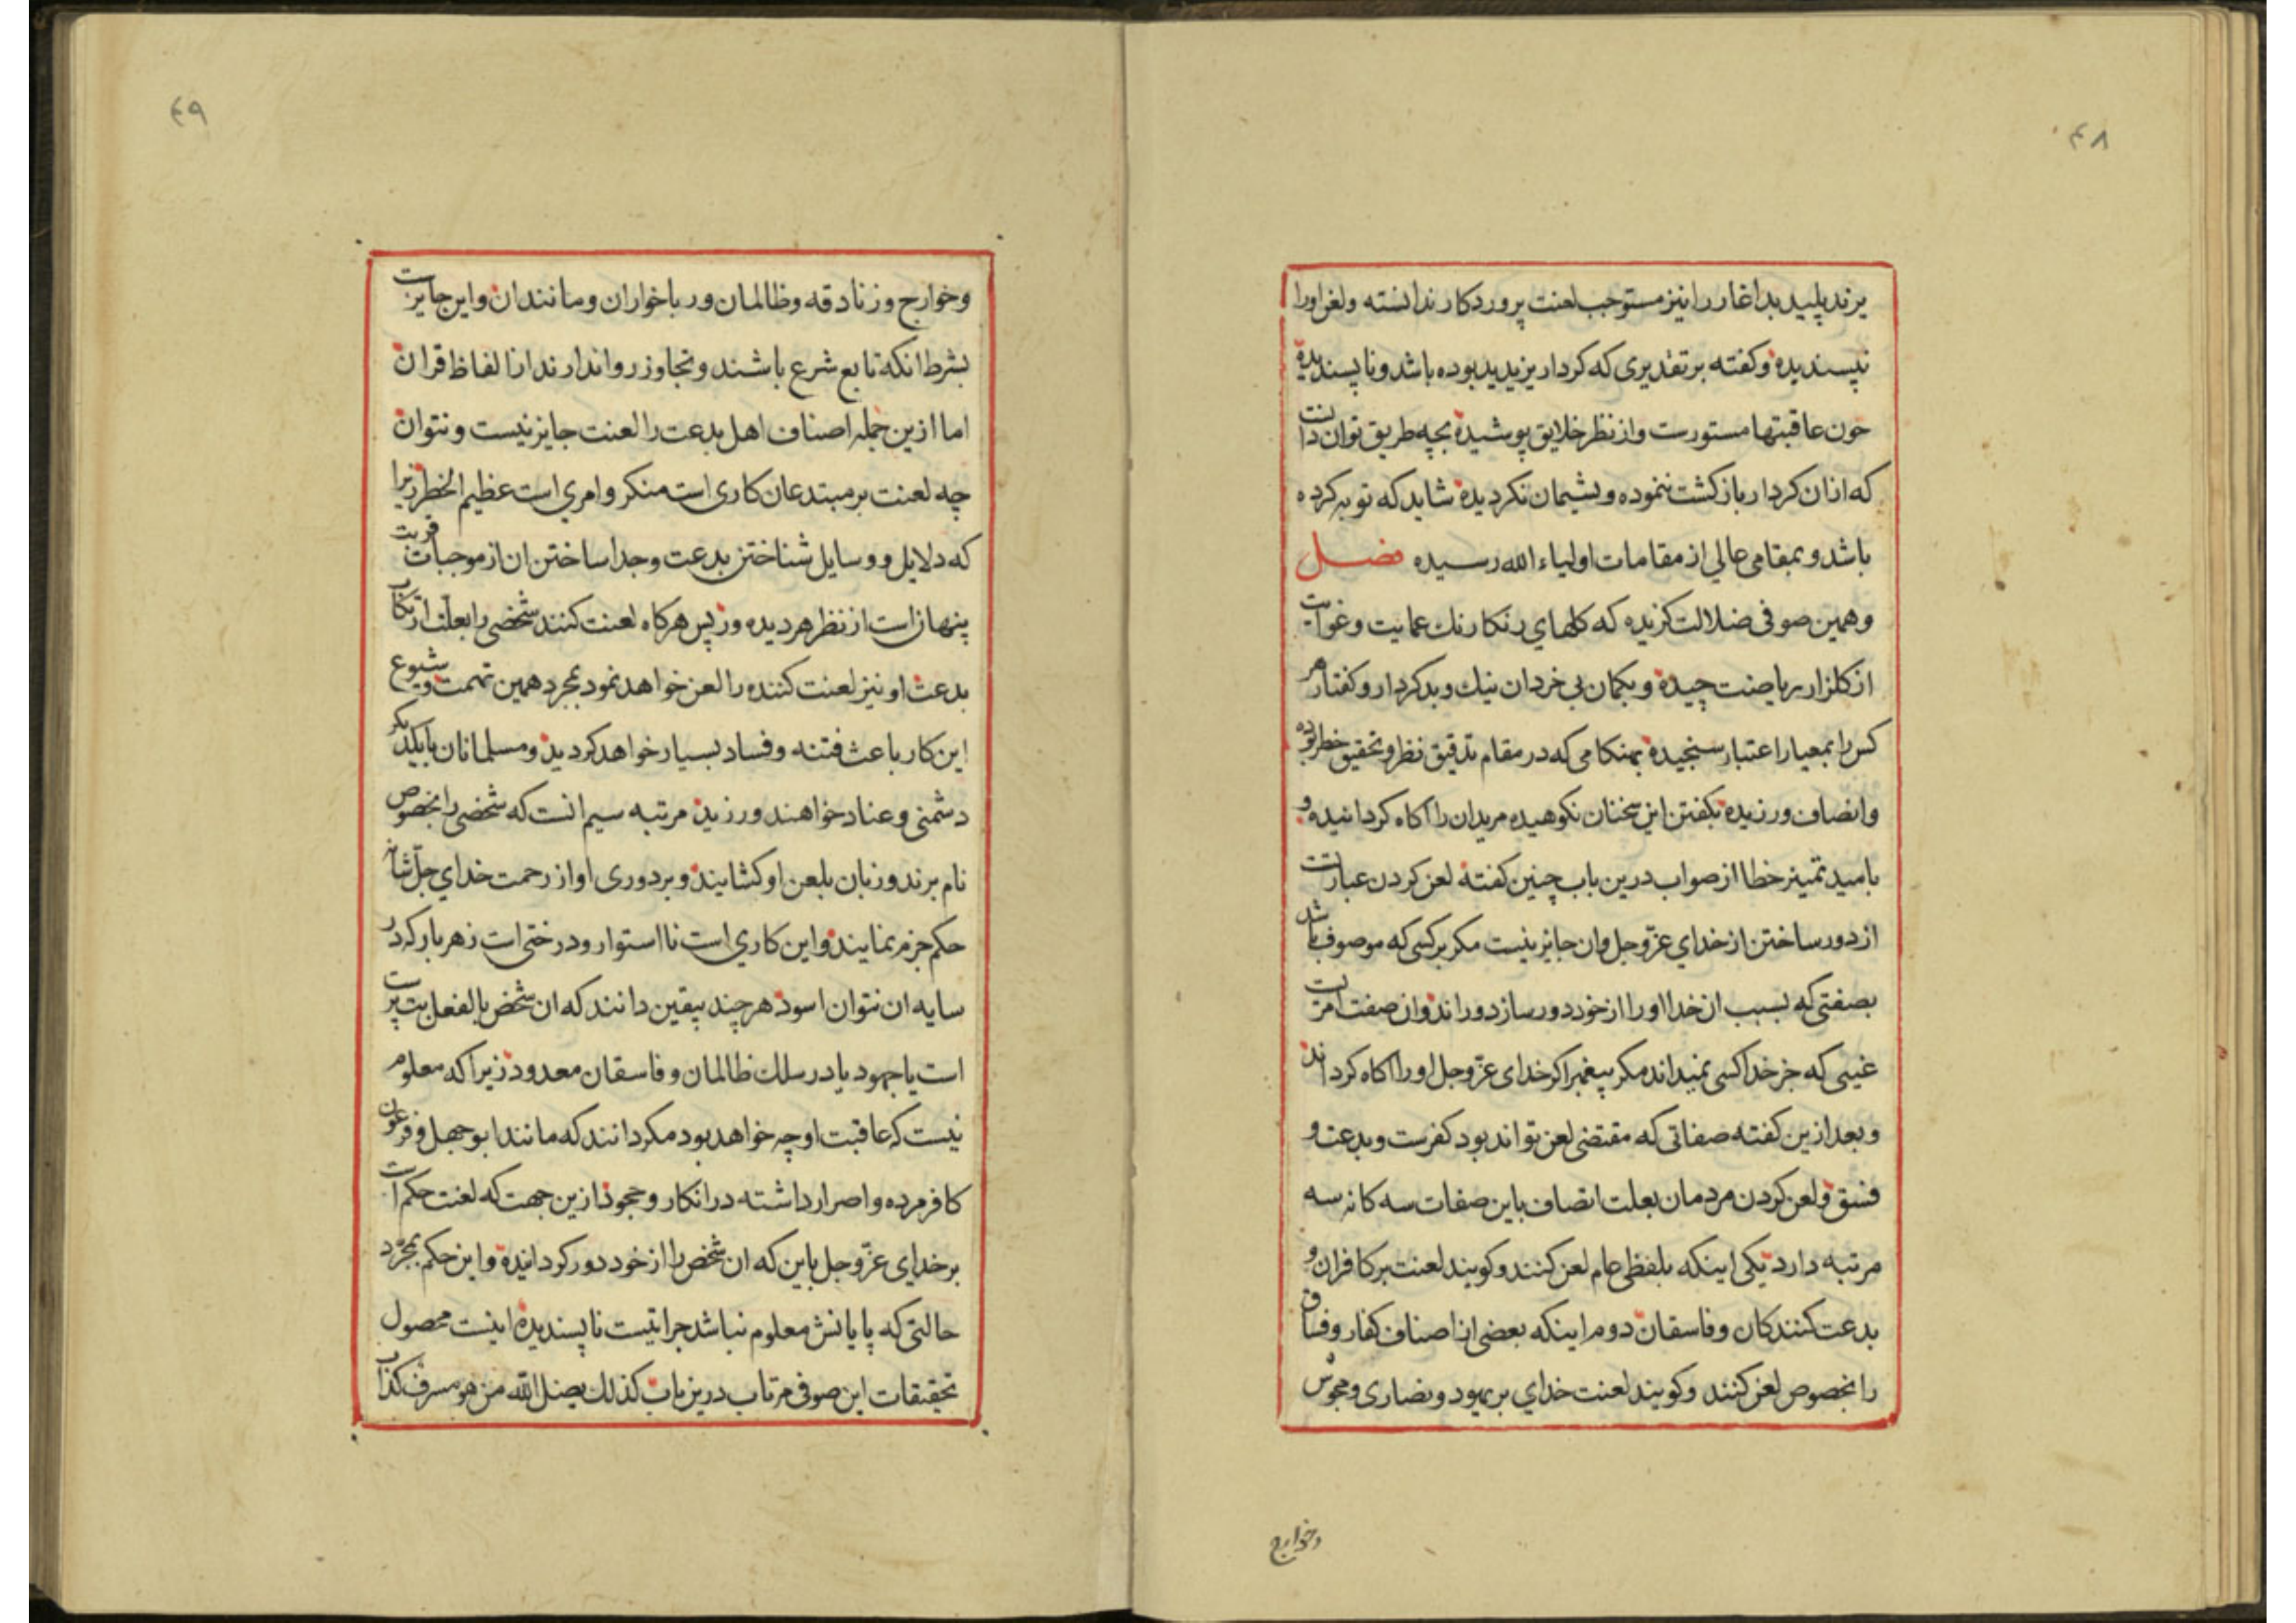 ۴۸
یزند پلید بداغار را نیز مستوجب لعنت پروردکار ندانسته ولعن اورا
نپسندیده وکفته برتقدیری که کردار یزید بد بوده باشد و ناپسندیده
چون عاقبتها مستورست واز نظر خلایق پوشیده بچه طریق توان دانست
که ازان کردار بازکشت ننموده و پشیمان نکردیده شاید که توبه کرده
باشد و بمقامی عالی از مقامات اولیاء الله رسیده فصل
وهمین صوفی ضلالت کزیده که کلهای رنکارنك عمایت وغوایت
از کلزار ریاضت چیده و بکمان بی خردان نیك وبد کردار وکفتار هر
کس را بمعیار اعتبار سنجیده بهنکامی که در مقام تدقیق نظر وتحقیق خطر بوده
وانصاف ورزیده بکفتن این سخنان نکوهیده مریدان را اکاه کردانیده و
بامید تمییز خطا از صواب درین باب چنین کفته لعن کردن عبارتست
از دور ساختن از خدای عزّوجل وان جایز نیست مکر برکسی که موصوف باشد
بصفتی که بسبب ان خدا اورا از خود دور سازد وراند وان صفت امریست
غیبی که جز خدا کسی نمیداند مکر پیغمبر اکر خدای عزّوجل اورا اکاه کرداند
وبعد ازین کفته صفاتی که مقتضی لعن تواند بود کفرست و بدعت و
فسق ولعن کردن مردمان بعلت اتصاف باین صفات سه کانه سه
مرتبه دارد یکی اینکه بلفظی عام لعن کنند وکویند لعنت برکافران و
بدعت کنندکان وفاسقان دوم اینکه بعضی از اصناف کفار وفساق
را بخصوص لعن کنند وکویند لعنت خدای بریهود ونصاری ومجوس
وخوارج
۴۹
وخوارج وزنادقه وظالمان ورباخواران ومانندان واین جایزست
بشرط انکه تابع شرع باشند وتجاوز روا ندارند از الفاظ قران
اما ازین جمله اصناف اهل بدعت را لعنت جایز نیست ونتوان
چه لعنت برمبتدعان کاری است منکر وامری است عظیم الخطر زیرا
که دلایل ووسایل شناختن بدعت وجدا ساختن ان از موجبات قربت
پنهان است از نظر هر دیده ور پس هرکاه لعنت کنند شخصی را بعلت ارتکاب
بدعت او نیز لعنت کننده را لعن خواهد نمود بمجرد همین تهمت وشیوع
این کار باعث فتنه وفساد بسیار خواهد کردید ومسلمانان با یکدیکر
دشمنی وعناد خواهند ورزید مرتبه سیم انست که شخصی را بخصوص
نام برند وزبان بلعن او کشایند وبردوری او از رحمت خدای جلّ شانه
حکم جزم نمایند واین کاری است نااستوار ودرختی است زهربار که در
سایه ان نتوان اسود هر چند بیقین دانند که ان شخص بالفعل بت پرست
است یا جهود یا در سلك ظالمان وفاسقان معدود زیرا که معلوم
نیست که عاقبت او چه خواهد بود مکر دانند که مانند ابوجهل وفرعون
کافر مرده واصرار داشته در انکار وجحود ازین جهت که لعنت حکم است
برخدای عزّوجل باین که ان شخص را از خود دور کردانیده واین حکم بمجرّد
حالتی که پایانش معلوم نباشد جراتیست ناپسندیده اینست محصول
تحقیقات این صوفی مرتاب درین باب کذلك یضل الله من هو مسرف کذاب